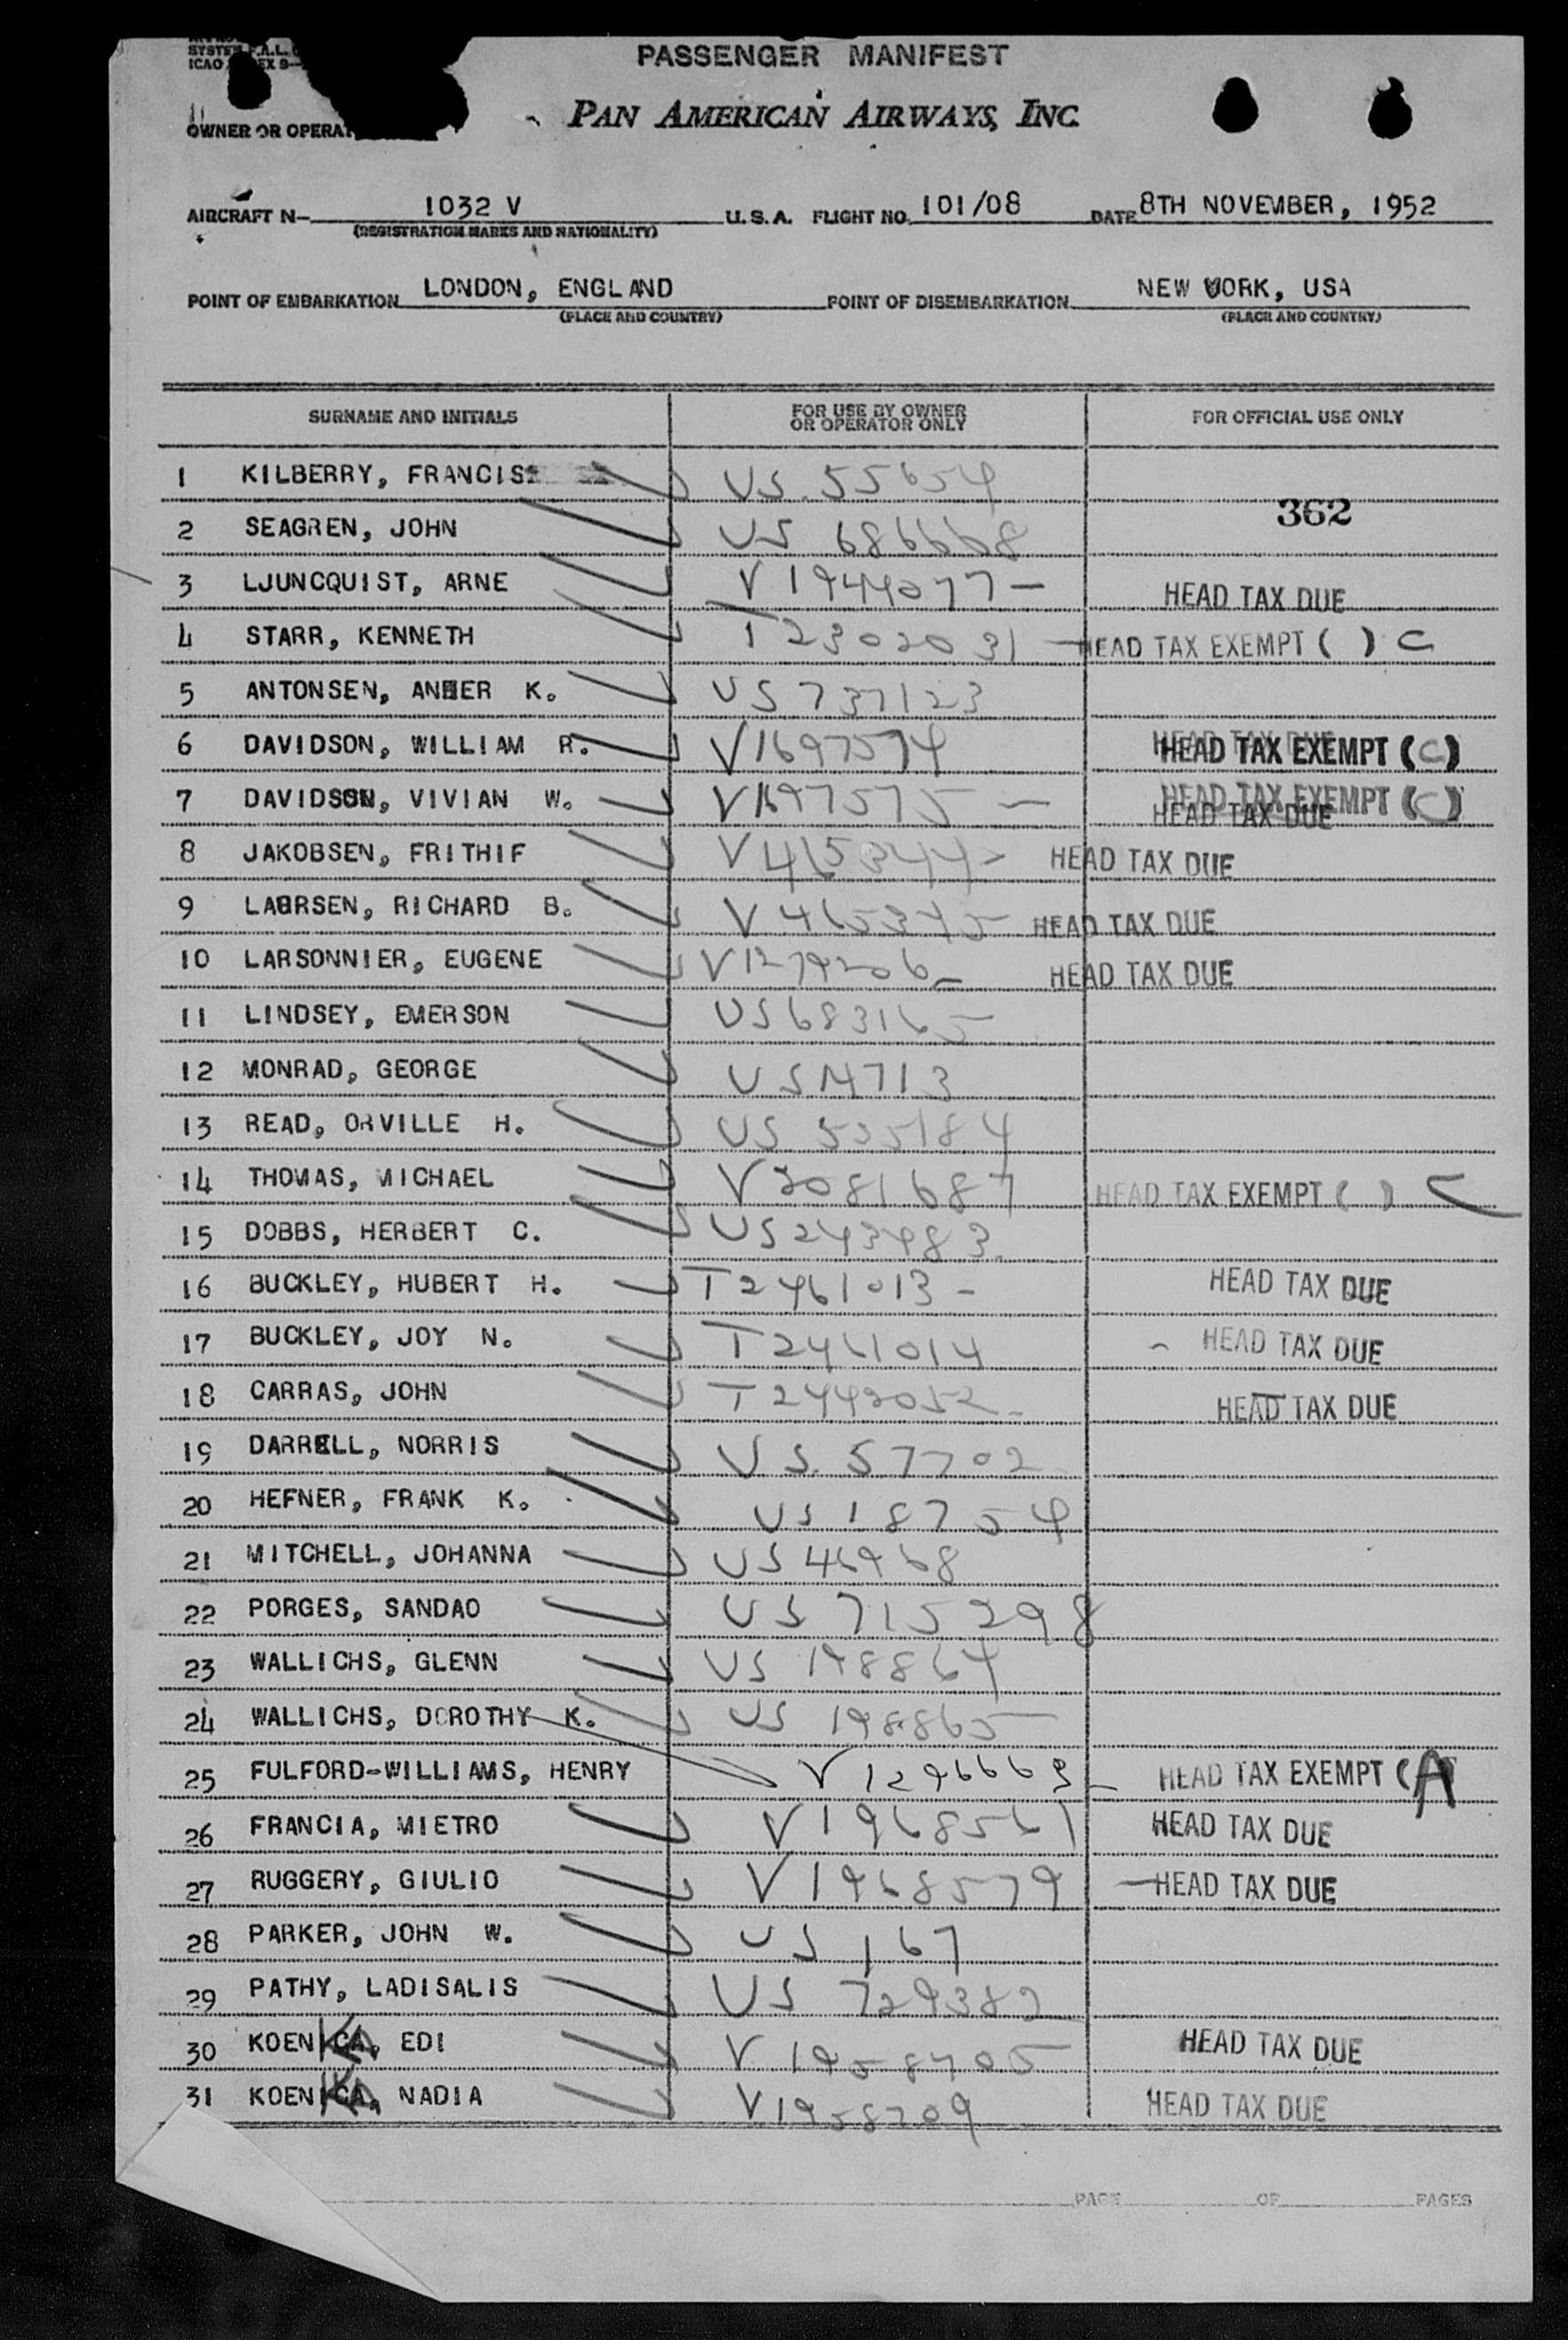 SYSTEM F.A.L.
ICAO EX 9—
PASSENGER MANIFEST
OWNER OR OPERAT
PAN AMERICAN AIRWAYS, INC.
AIRCRAFT N— 1032 V U.S.A. FLIGHT NO. 101/08 DATE 8TH NOVEMBER, 1952
(REGISTRATION MARKS AND NATIONALITY)
POINT OF EMBARKATION LONDON, ENGLAND POINT OF DISEMBARKATION NEW YORK, USA
(PLACE AND COUNTRY) (PLACE AND COUNTRY)
SURNAME AND INITIALS FOR USE BY OWNER OR OPERATOR ONLY FOR OFFICIAL USE ONLY
1 KILBERRY, FRANCIS US 55654
362
2 SEAGREN, JOHN US 686668
3 LJUNCQUIST, ARNE V 1944077 — HEAD TAX DUE
4 STARR, KENNETH T 2302031 — HEAD TAX EXEMPT ( ) C
5 ANTONSEN, ANKER K. US 737123
6 DAVIDSON, WILLIAM R. V1697574 HEAD TAX DUE HEAD TAX EXEMPT (C)
7 DAVIDSON, VIVIAN W. V1697575 — HEAD TAX EXEMPT (C) HEAD TAX DUE
8 JAKOBSEN, FRITHIF V 465344 - HEAD TAX DUE
9 LAURSEN, RICHARD B. V 465345 HEAD TAX DUE
10 LARSONNIER, EUGENE V1279206 - HEAD TAX DUE
11 LINDSEY, EMERSON US 683165
12 MONRAD, GEORGE US 14713
13 READ, ORVILLE H. US 535184
14 THOMAS, MICHAEL V 2081687 HEAD TAX EXEMPT ( ) C
15 DOBBS, HERBERT C. US 243983
16 BUCKLEY, HUBERT H. T 2461013 - HEAD TAX DUE
17 BUCKLEY, JOY N. T 2461014 - HEAD TAX DUE
18 CARRAS, JOHN T 2442052 - HEAD TAX DUE
19 DARRELL, NORRIS US 57702
20 HEFNER, FRANK K. US 18754
21 MITCHELL, JOHANNA US 46968
22 PORGES, SANDAO US 715298
23 WALLICHS, GLENN US 198864
24 WALLICHS, DOROTHY K. US 198865
25 FULFORD-WILLIAMS, HENRY V 1296669 - HEAD TAX EXEMPT (A)
26 FRANCIA, MIETRO V 1968561 HEAD TAX DUE
27 RUGGERY, GIULIO V 1968579 — HEAD TAX DUE
28 PARKER, JOHN W. US 167
29 PATHY, LADISALIS US 729382
30 KOENIG, EDI V 1958705 HEAD TAX DUE
31 KOENIG, NADIA V 1958709 HEAD TAX DUE
PAGE OF PAGES